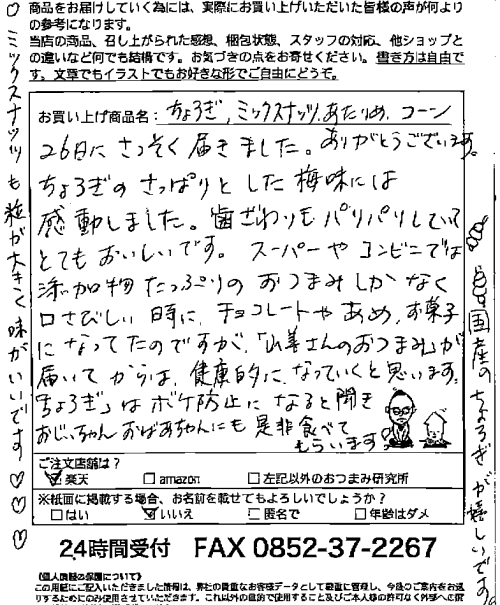 商品をお届けしていく為には、実際にお買い上げいただいた皆様の声が何より
の参考になります。
当店の商品、召し上がられた感想、梱包状態、スタッフの対応、他ショップと
の違いなど何でも結構です。お気づきの点をお寄せください。書き方は自由で
す、文章でもイラストでもお好きな形でご自由にどうぞ。
お買い上げ商品名：ちょろぎ、ミックスナッツ、あたりめ、コーン
26日にさっそく届きました。ありがとうございます。
ちょろぎのさっぱりとした梅味には
感動しました。歯ざわりもパリパリしていて
とてもおいしいです。スーパーやコンビニでは
添加物たっぷりのおつまみしかなく
口さびしい時に、チョコレートやあめ、お菓子
になってたのですが、「山善さんのおつまみ」が
届いてからは、健康的に、なっていくと思います。
ちょろぎ」はボケ防止になると聞き
おじぃちゃんおばあちゃんにも是非食べて
もらいます。
♡ミックスナッツも粒が大きく味がいいです♡♡♡
国産のちょろぎが嬉しいです。
ご注文店舗は？
☑楽天 □amazon □左記以外のおつまみ研究所
※紙面に掲載する場合、お名前を載せてもよろしいでしょうか？
□はい ☑いいえ □匿名で □年齢はダメ
24時間受付 FAX 0852-37-2267
《個人情報の保護について》
この用紙にご記入いただきました情報は、弊社の貴重なお客様データとして厳重に管理し、今後のご案内をお送
りするためにのみ使用させていただきます。これ以外の目的で使用すること及びご本人様の許可なく外部への開